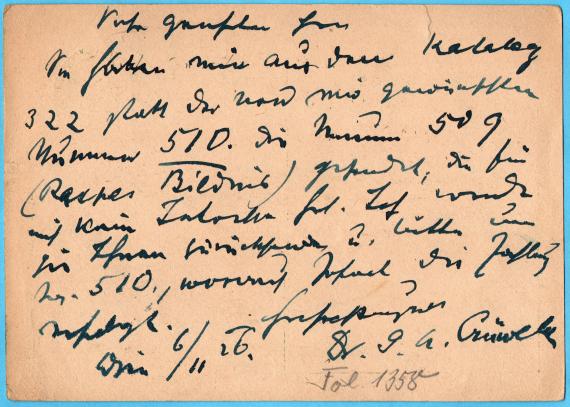 Sehr geehrter Herr
Sie haben mir aus dem Katalog
322 statt der von mir gewünschten
Nummer 510. die Nummer 509
(Raspes Bildnis) gesendet, die für
mich kein Interesse hat. Ich werde
sie Ihnen zurücksenden u. bitte um
No. 510., worauf sofort die Zahlung
erfolgt.
Wien 6/11 26. Dr.
Fol. 1358